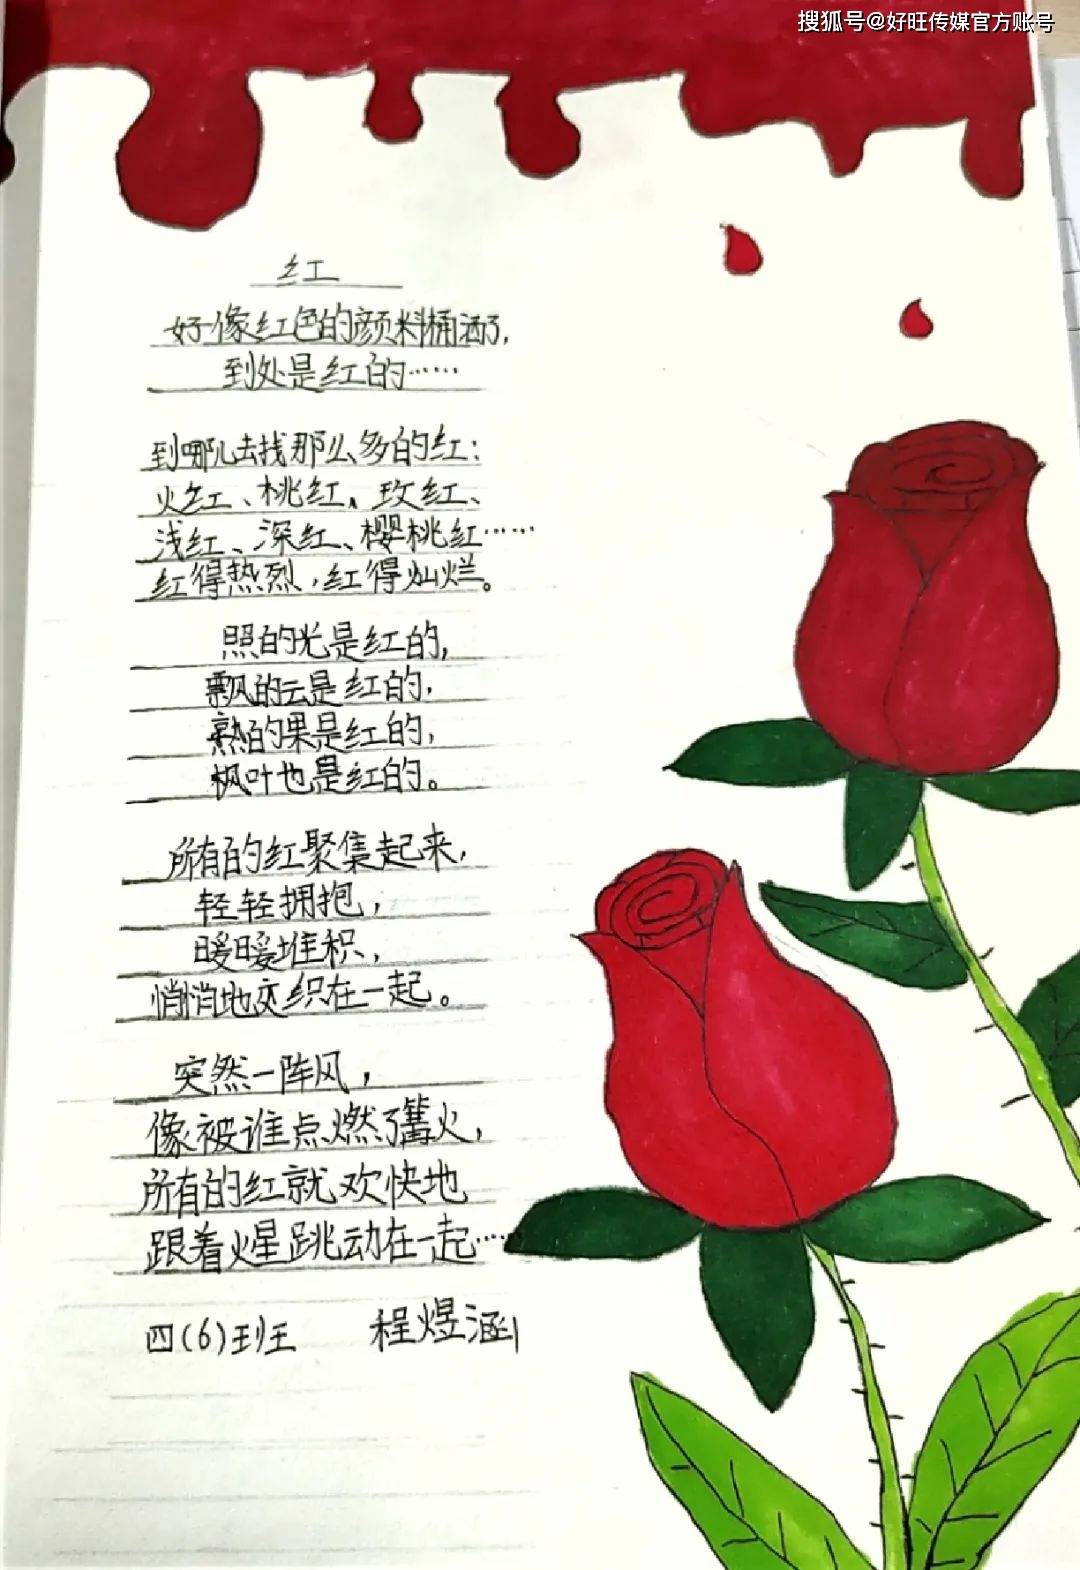 搜狐号@好旺传媒官方账号
红
好像红色的颜料桶洒了,
到处是红的……
到哪儿去找那么多的红:
火红、桃红、玫红、
浅红、深红、樱桃红……
红得热烈,红得灿烂。
照的光是红的,
飘的云是红的,
熟的果是红的,
枫叶也是红的。
所有的红聚集起来,
轻轻拥抱,
暖暖堆积,
悄悄地交织在一起。
突然一阵风,
像被谁点燃了篝火,
所有的红就欢快地
跟着火星跳动在一起……
四(6)班 程煜涵